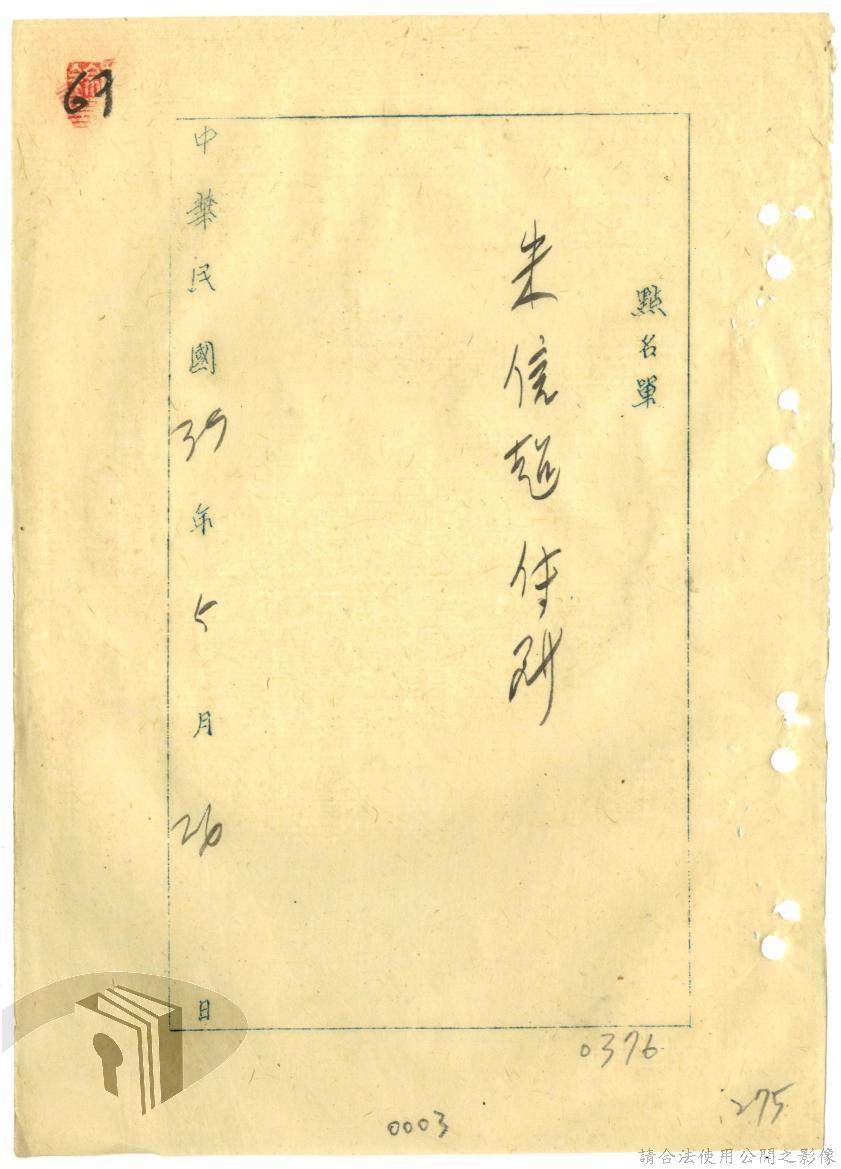 點名單
朱信超
中華民國39年5月26日
69
0376
275
0003
請合法使用公開之影像